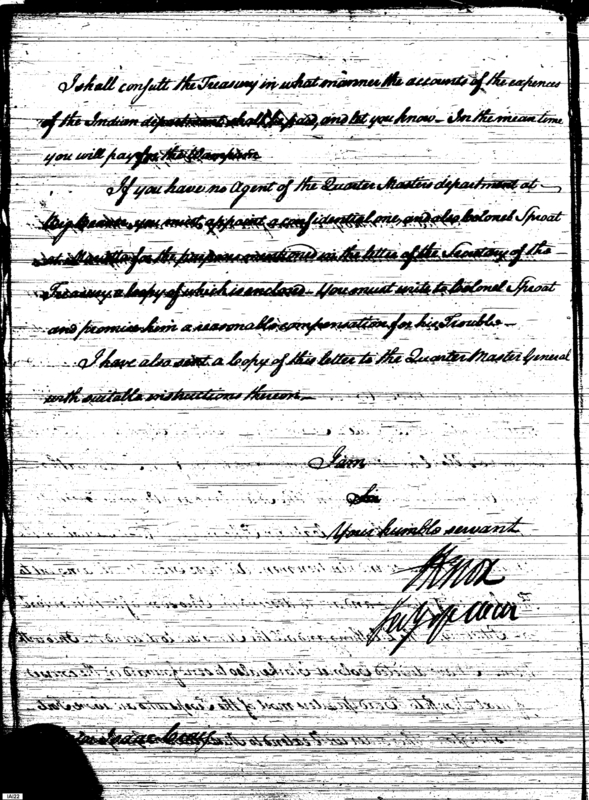 I shall consult the Treasury in what manner the accounts of the expences
of the Indian department shall be paid, and let you know – In the mean time
you will pay for the Wampum
If you have no Agent of the Quarter Masters department at
you must appoint a confidential one, and also Colonel Sproat
for the purposes mentioned in the letter of the Secretary of the
Treasury a Copy of which is enclosed – You must write to Colonel Sproat
and promise him a reasonable compensation for his Trouble –
I have also sent a Copy of this letter to the Quarter Master General
with suitable instructions thereon –
I am
Sir
Your humble servant
HKnox
Secy of War
Isaac Craig
IAI22